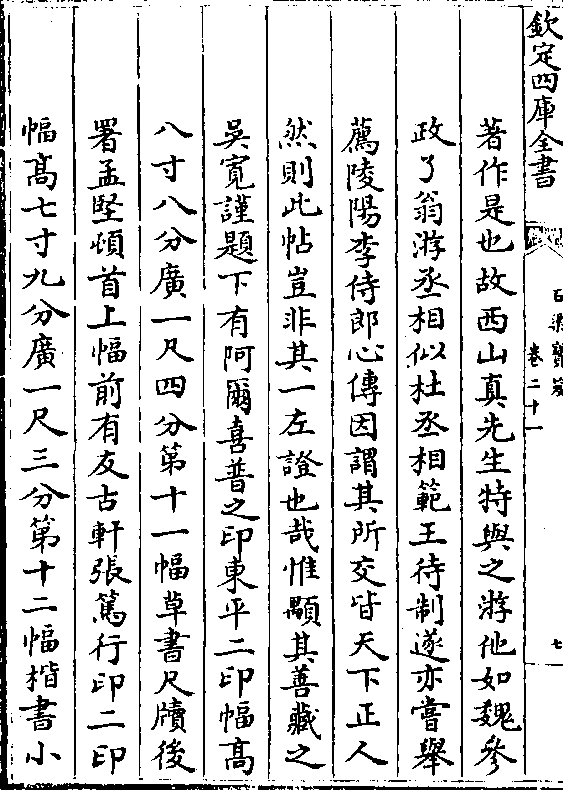 欽定四庫全書
石渠寶笈
卷二十一
七
著作是也故西山真先生特與之游他如魏參
政了翁游丞相似杜丞相範王待制遂亦嘗舉
薦陵陽李侍郎心傳因謂其所交皆天下正人
然則此帖豈非其一左證也哉惟顯其善藏之
吳寬謹題下有阿爾喜普之印東平二印幅高
八寸八分廣一尺四分第十一幅草書尺牘後
署孟堅頓首上幅前有友古軒張篤行印二印
幅高七寸九分廣一尺三分第十二幅楷書小